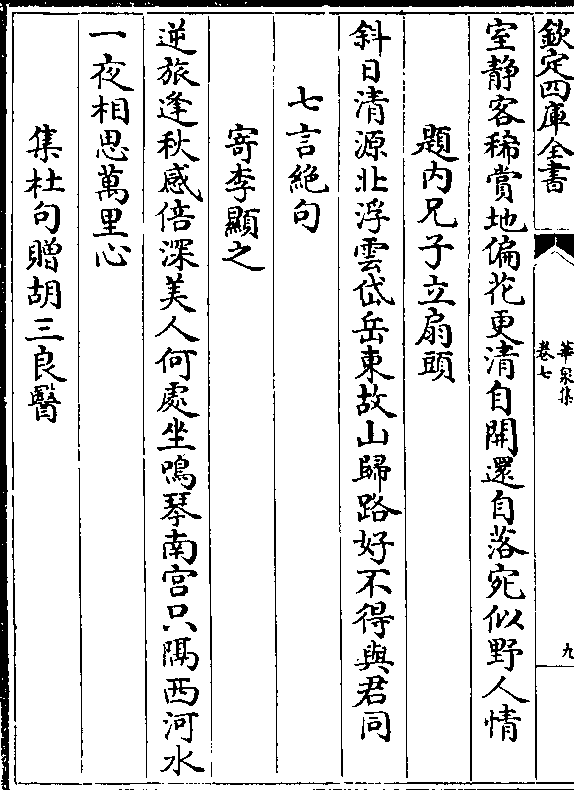 欽定四庫全書
華泉集
卷七
九
室静客稀賞地偏花更清自開還自落宛似野人情
題内兄子立扇頭
斜日清源北浮雲岱岳東故山歸路好不得與君同
七言絶句
寄李顯之
逆旅逢秋感倍深美人何處坐鳴琴南宫只隔西河水
一夜相思萬里心
集杜句贈胡三良醫